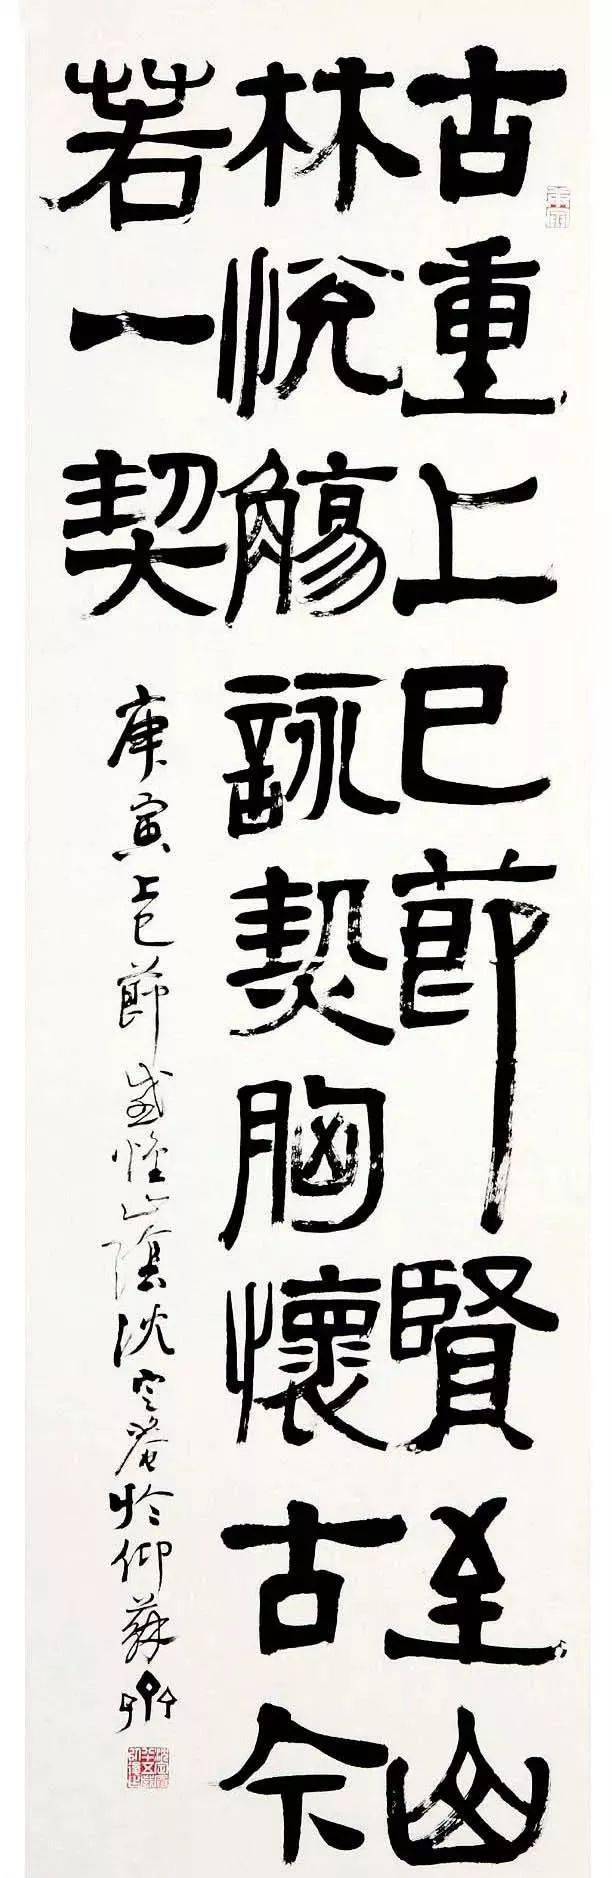 古重上巳節賢至山
林悅觴詠契胸懷古今
若一契
庚寅上巳節感懷山陰沈定庵於仰蘇